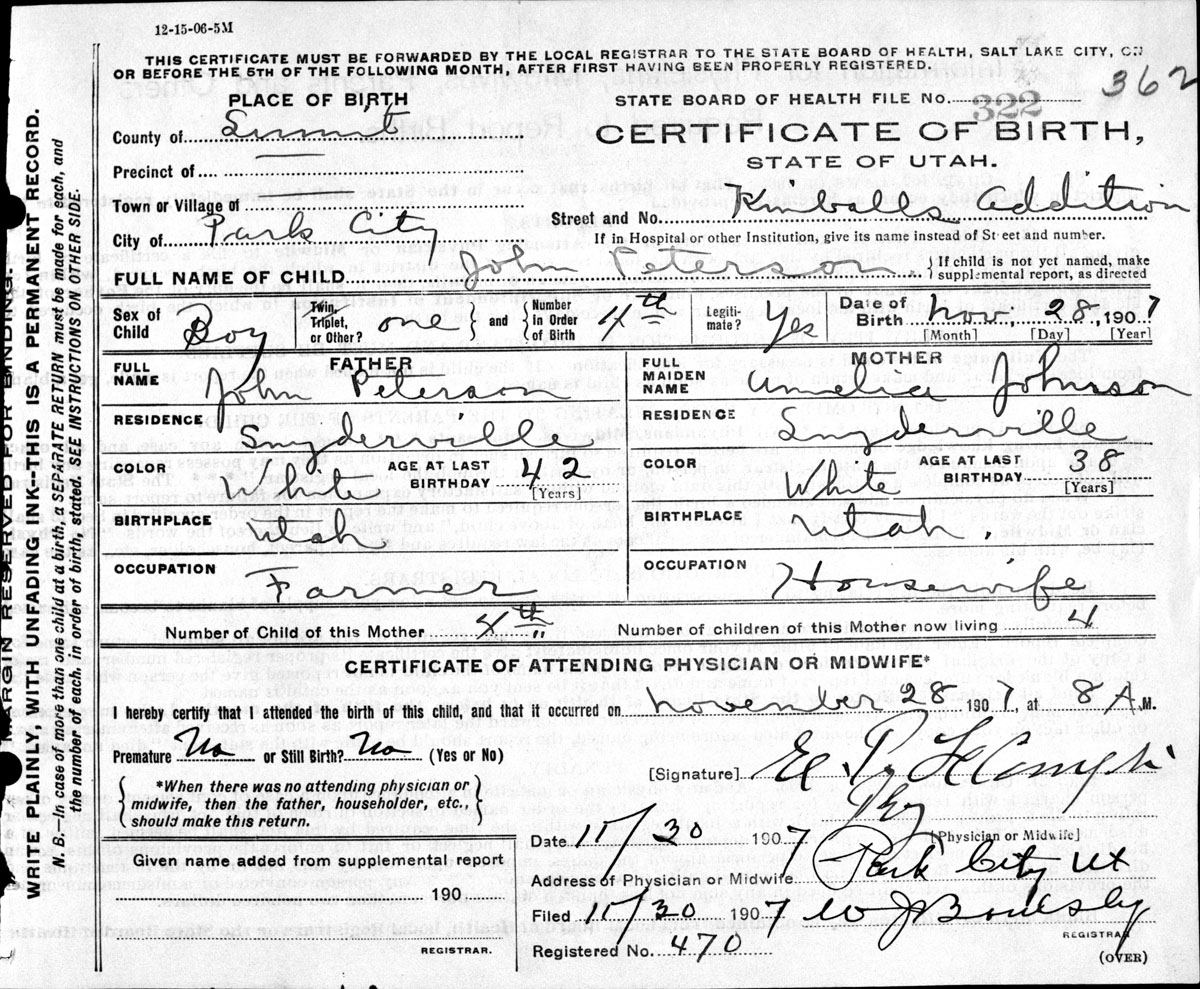 12-15-06-5M
THIS CERTIFICATE MUST BE FORWARDED BY THE LOCAL REGISTRAR TO THE STATE BOARD OF HEALTH, SALT LAKE CITY, ON
OR BEFORE THE 5TH OF THE FOLLOWING MONTH, AFTER FIRST HAVING BEEN PROPERLY REGISTERED.
362
PLACE OF BIRTH
STATE BOARD OF HEALTH FILE NO. 322
County of Summit
CERTIFICATE OF BIRTH,
STATE OF UTAH.
Precinct of
Town or Village of
Street and No. Kimballs addition
City of Park City
If in Hospital or other Institution, give its name instead of Street and number.
FULL NAME OF CHILD John Peterson
If child is not yet named, make supplemental report, as directed
Sex of Child Boy
Twin, Triplet, or Other? one
and
Number in Order of Birth 4th
Legitimate? Yes
Date of Birth Nov, 28, 1907
[Month] [Day] [Year]
FATHER
MOTHER
FULL NAME John Peterson
FULL MAIDEN NAME Amelia Johnson
RESIDENCE Snyderville
RESIDENCE Snyderville
COLOR White AGE AT LAST BIRTHDAY 42 [Years]
COLOR White AGE AT LAST BIRTHDAY 38 [Years]
BIRTHPLACE Utah
BIRTHPLACE Utah.
OCCUPATION Farmer
OCCUPATION Housewife
Number of Child of this Mother 4th
Number of children of this Mother now living 4
CERTIFICATE OF ATTENDING PHYSICIAN OR MIDWIFE*
I hereby certify that I attended the birth of this child, and that it occurred on November 28 1907, at 8 A.M.
Premature No or Still Birth? No (Yes or No)
[Signature] E. P.
*When there was no attending physician or
midwife, then the father, householder, etc.,
should make this return.
Phy
[Physician or Midwife]
Date 11/30 1907
Given name added from supplemental report
Address of Physician or Midwife Park City Ut
190
Filed 11/30 1907 W J
REGISTRAR
REGISTRAR.
Registered No. 470
(OVER)
MARGIN RESERVED FOR BINDING.
WRITE PLAINLY, WITH UNFADING INK—THIS IS A PERMANENT RECORD.
N. B.—In case of more than one child at a birth, a SEPARATE RETURN must be made for each, and
the number of each, in order of birth, stated. SEE INSTRUCTIONS ON OTHER SIDE.